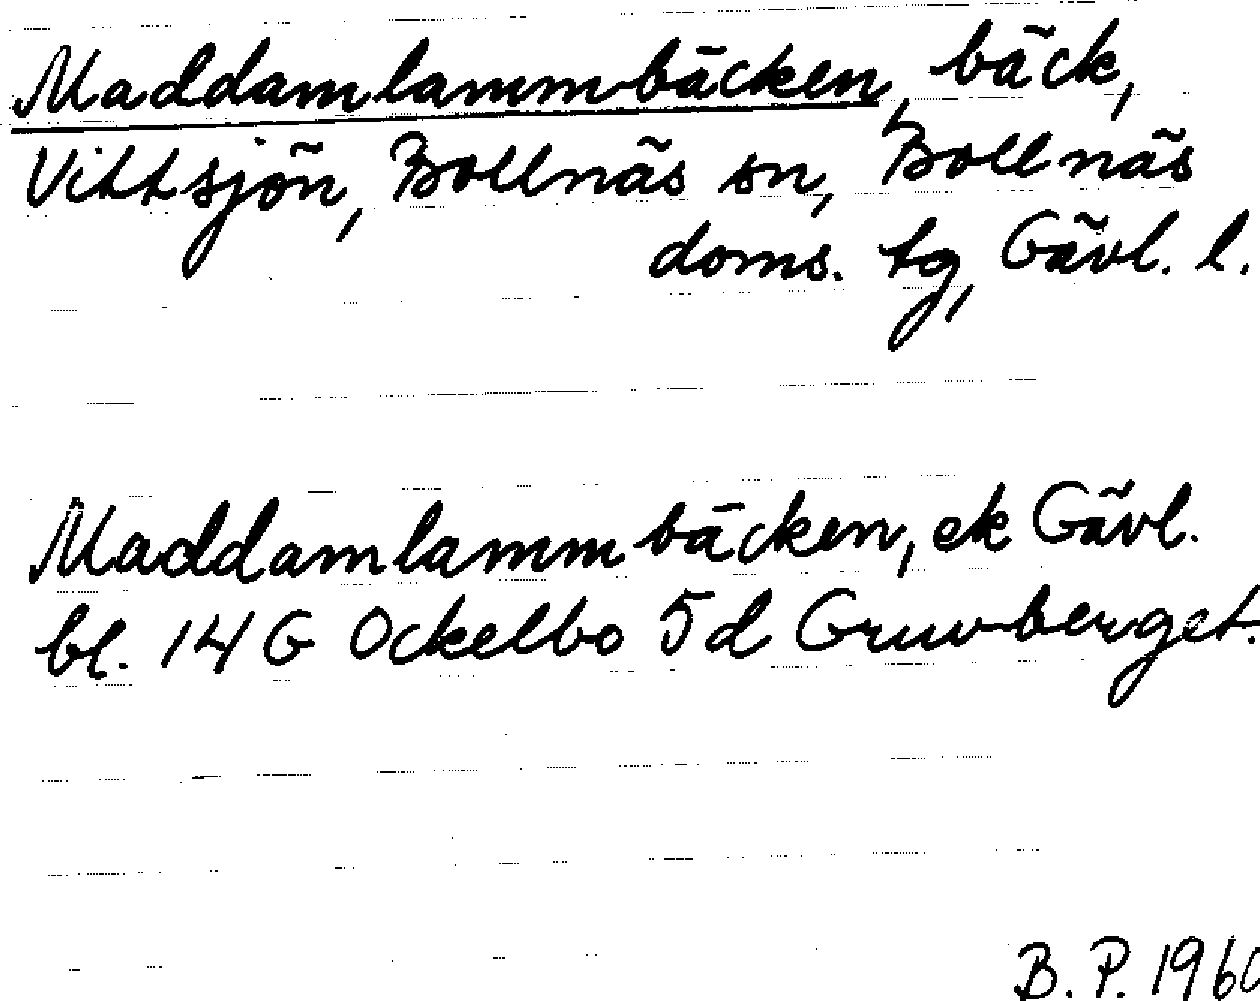 Maddamlammbäcken, bäck,
Vittsjön, Bollnäs sn, Bollnäs
doms. tg, Gävl. l.
Maddamlammbäcken, ek Gävl.
bl. 14 G Ockelbo 5d Gruvberget.
B. P. 1960